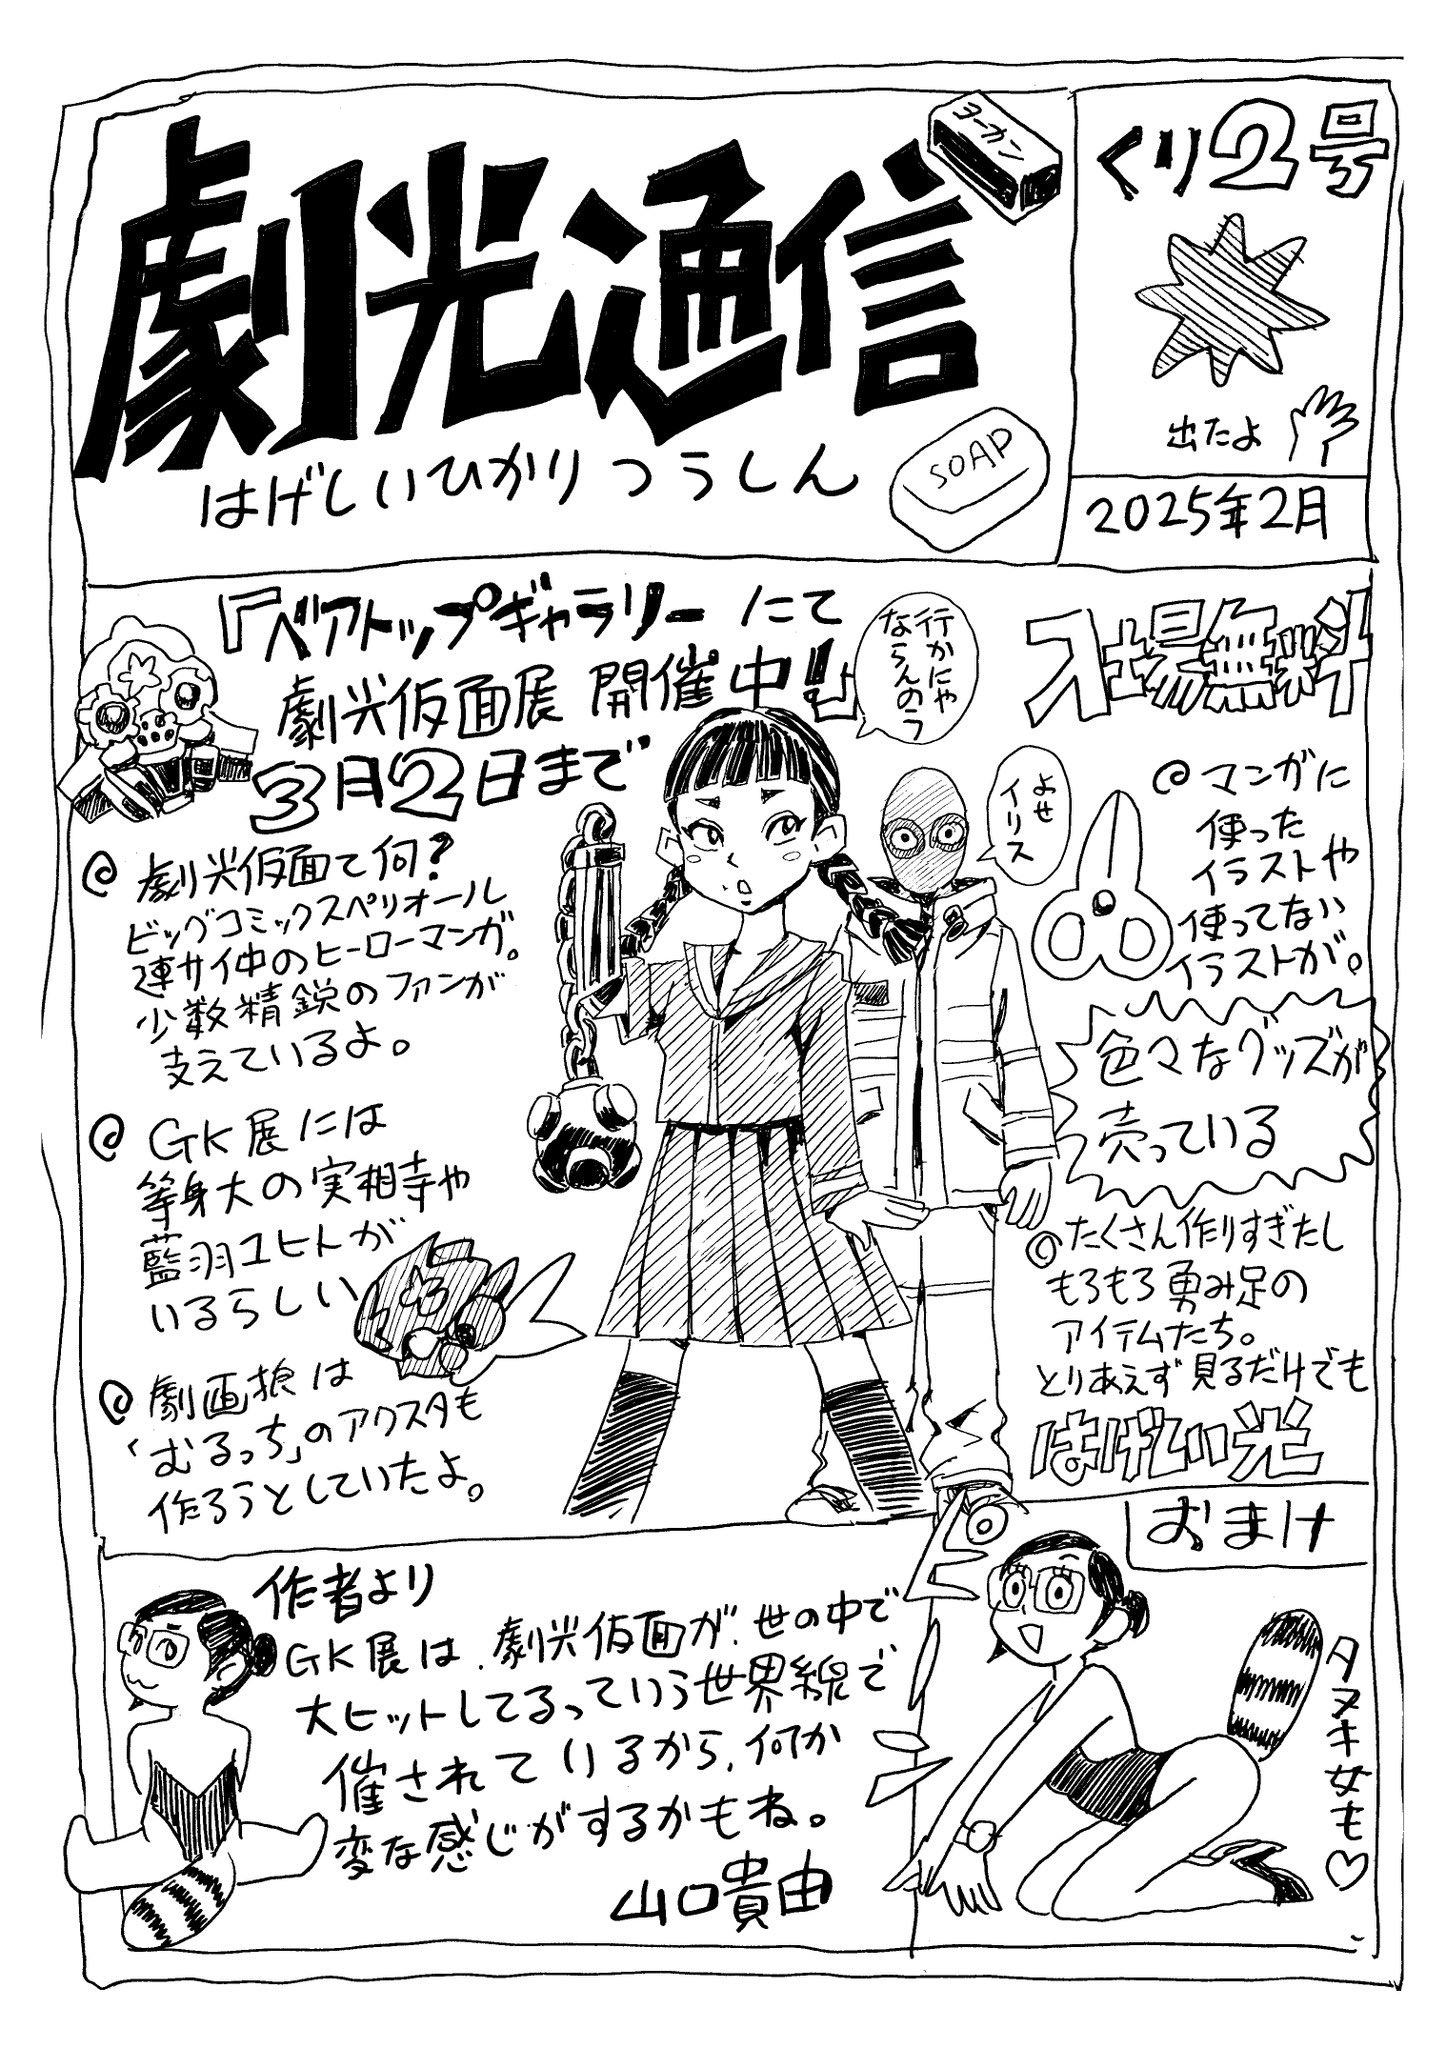 劇光通信
はげしいひかりつうしん
ヨーカン
SOAP
くり2号
出たよ
2025年2月
『ベアトップギャラリーにて
劇光仮面展 開催中!』
3月2日まで
行かにゃ
ならんのう
入場無料
よせ
イリス
@ 劇光仮面て何?
ビッグコミックスペリオール
連サイ中のヒーローマンガ。
少数精鋭のファンが
支えているよ。
@ GK展には
等身大の実相寺や
藍羽ユヒトが
いるらしい
@ 劇画狼は
「むるっち」のアクスタも
作ろうとしていたよ。
@ マンガに
使った
イラストや
使ってない
イラストが。
色々なグッズが
売っている
@ たくさん作りすぎたし
もろもろ勇み足の
アイテムたち。
とりあえず見るだけでも
はげしい光
作者より
GK展は、劇光仮面が、世の中で
大ヒットしてるっていう世界線で
催されているから、何か
変な感じがするかもね。
山口貴由
おまけ
タヌキ女も♡